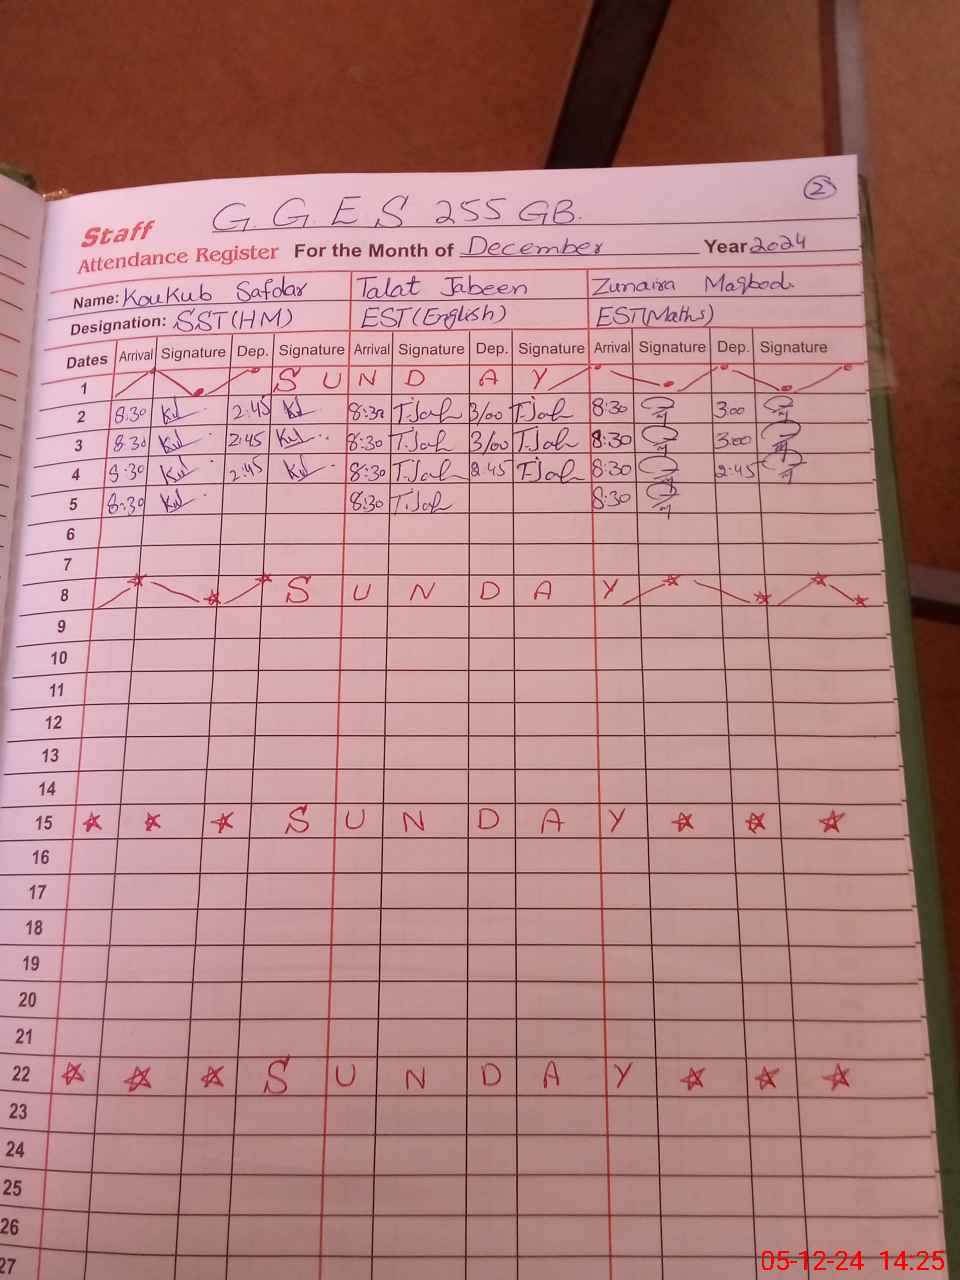 2
G.G.E.S 255 GB.
Staff
Attendance Register For the Month of December Year 2024
Name: KouKub Safdar Talat Jabeen Zunaira Maqbool
Designation: SST(HM) EST(English) EST(Maths)
Dates Arrival Signature Dep. Signature Arrival Signature Dep. Signature Arrival Signature Dep. Signature
1 SUNDAY
2 8:30 2:45 8:30 T.Jab 3/00 T.Jab 8:30 3:00
3 8:30 2:45 8:30 T.Jab 3/00 T.Jab 8:30 3:00
4 8:30 2:45 8:30 T.Jab 2:45 T.Jab 8:30 2:45
5 8:30 8:30 T.Jab 8:30
6
7
8 SUNDAY
9
10
11
12
13
14
15 SUNDAY
16
17
18
19
20
21
22 SUNDAY
23
24
25
26
27
05-12-24 14:25